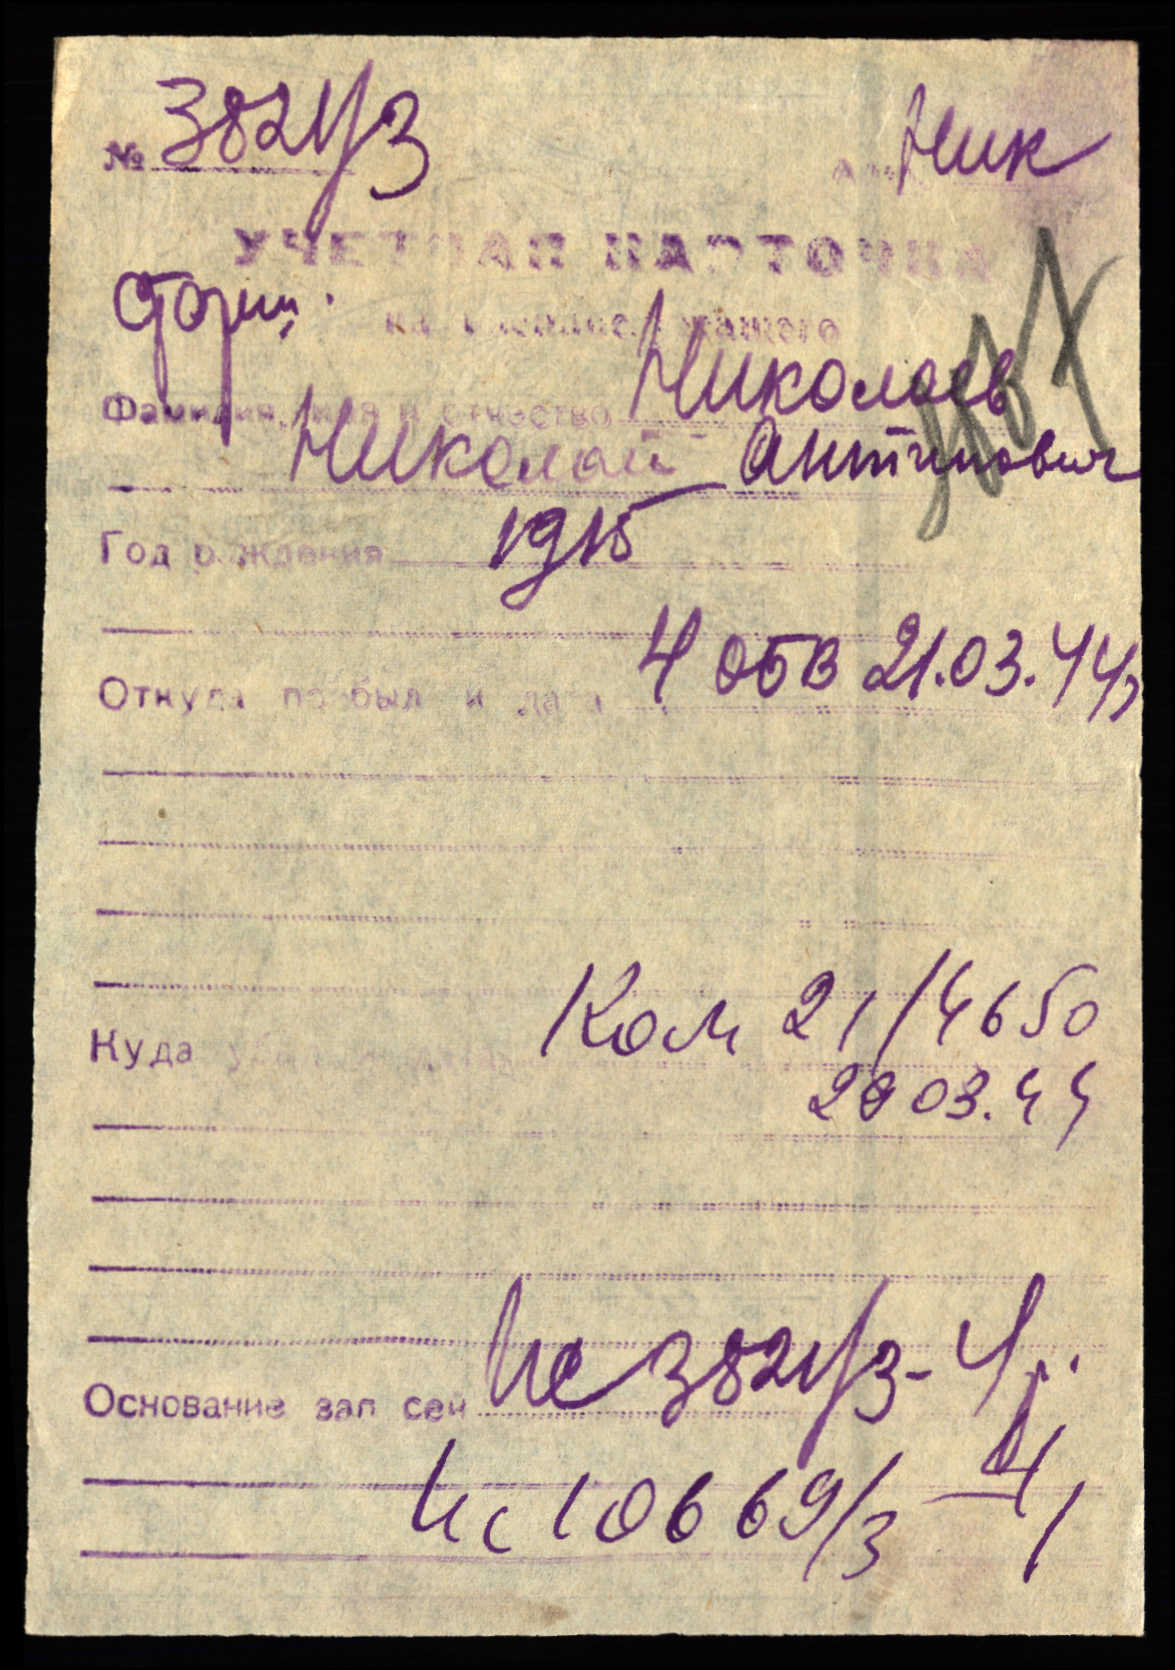 № 3821/3 Ник
УЧЕТНАЯ КАРТОЧКА
на военнослужащего
Фамилия, имя и отчество Николаев
Николай Антипович
Год рождения 1915
Откуда прибыл и дата 4 ОБВ 21.03.44г
Куда убыл и дата Ком 21/4650
28 03.44
Основание зап сей Ис 3821/3-4г.
Ис 10669/3 - 4/1